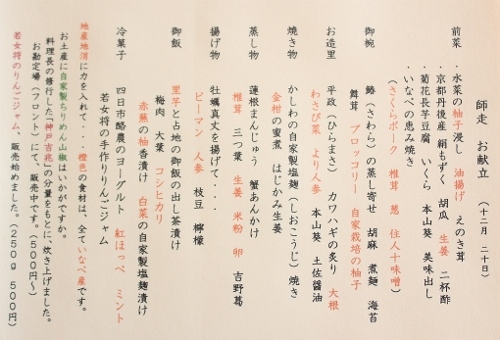 師走 お献立 (十二月 二十日)
前菜 ・水菜の柚子浸し 油揚げ えのき茸
・京都丹後産 絹もずく 胡瓜 生姜 二杯酢
・菊花長芋豆腐 いくら 本山葵 美味出し
・いなべの恵み焼き
(さくらポーク 椎茸 葱 住人十味噌)
御椀 鰆(さわら)の蒸し寄せ 胡麻 煮麺 海苔
舞茸 ブロッコリー 自家栽培の柚子
お造里 平政(ひらまさ) カワハギの炙り 大根
わさび菜 より人参 本山葵 土佐醤油
焼き物 かしわの自家製塩麹(しおこうじ)焼き
金柑の蜜煮 はじかみ生姜
蒸し物 蓮根まんじゅう 蟹あんかけ
椎茸 三つ葉 生姜 米粉 卵 吉野葛
揚げ物 牡蠣真丈を揚げて・・・
ピーマン 人参 枝豆 檸檬
御飯 里芋と占地の御飯の出し茶漬け
梅肉 大葉 コンヒカリ
赤蕪の柚香漬け 白菜の自家製塩麹漬け
冷菓子 四日市酪農のヨーグルト 紅ほっぺ ミント
若女将の手作りりんごジャム
地産地消に力を入れて・・・橙色の食材は、全ていなべ産です。
お土産に自家製ちりめん山椒はいかがですか。
料理長の修行した「神戸吉兆」の分量をもとに、炊き上げました。
お勘定場(フロント)にて、販売中です。(500円~)
若女将のりんごジャム、販売始めました。(250g 500円)